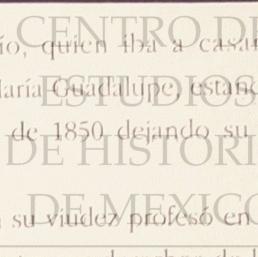 CENTRO DE
ío, quien iba a casar
María Guadalupe, estand
ESTUDIOS
de 1850 dejando su
DE HISTORI
DE MEXICO
su viudez profesó en